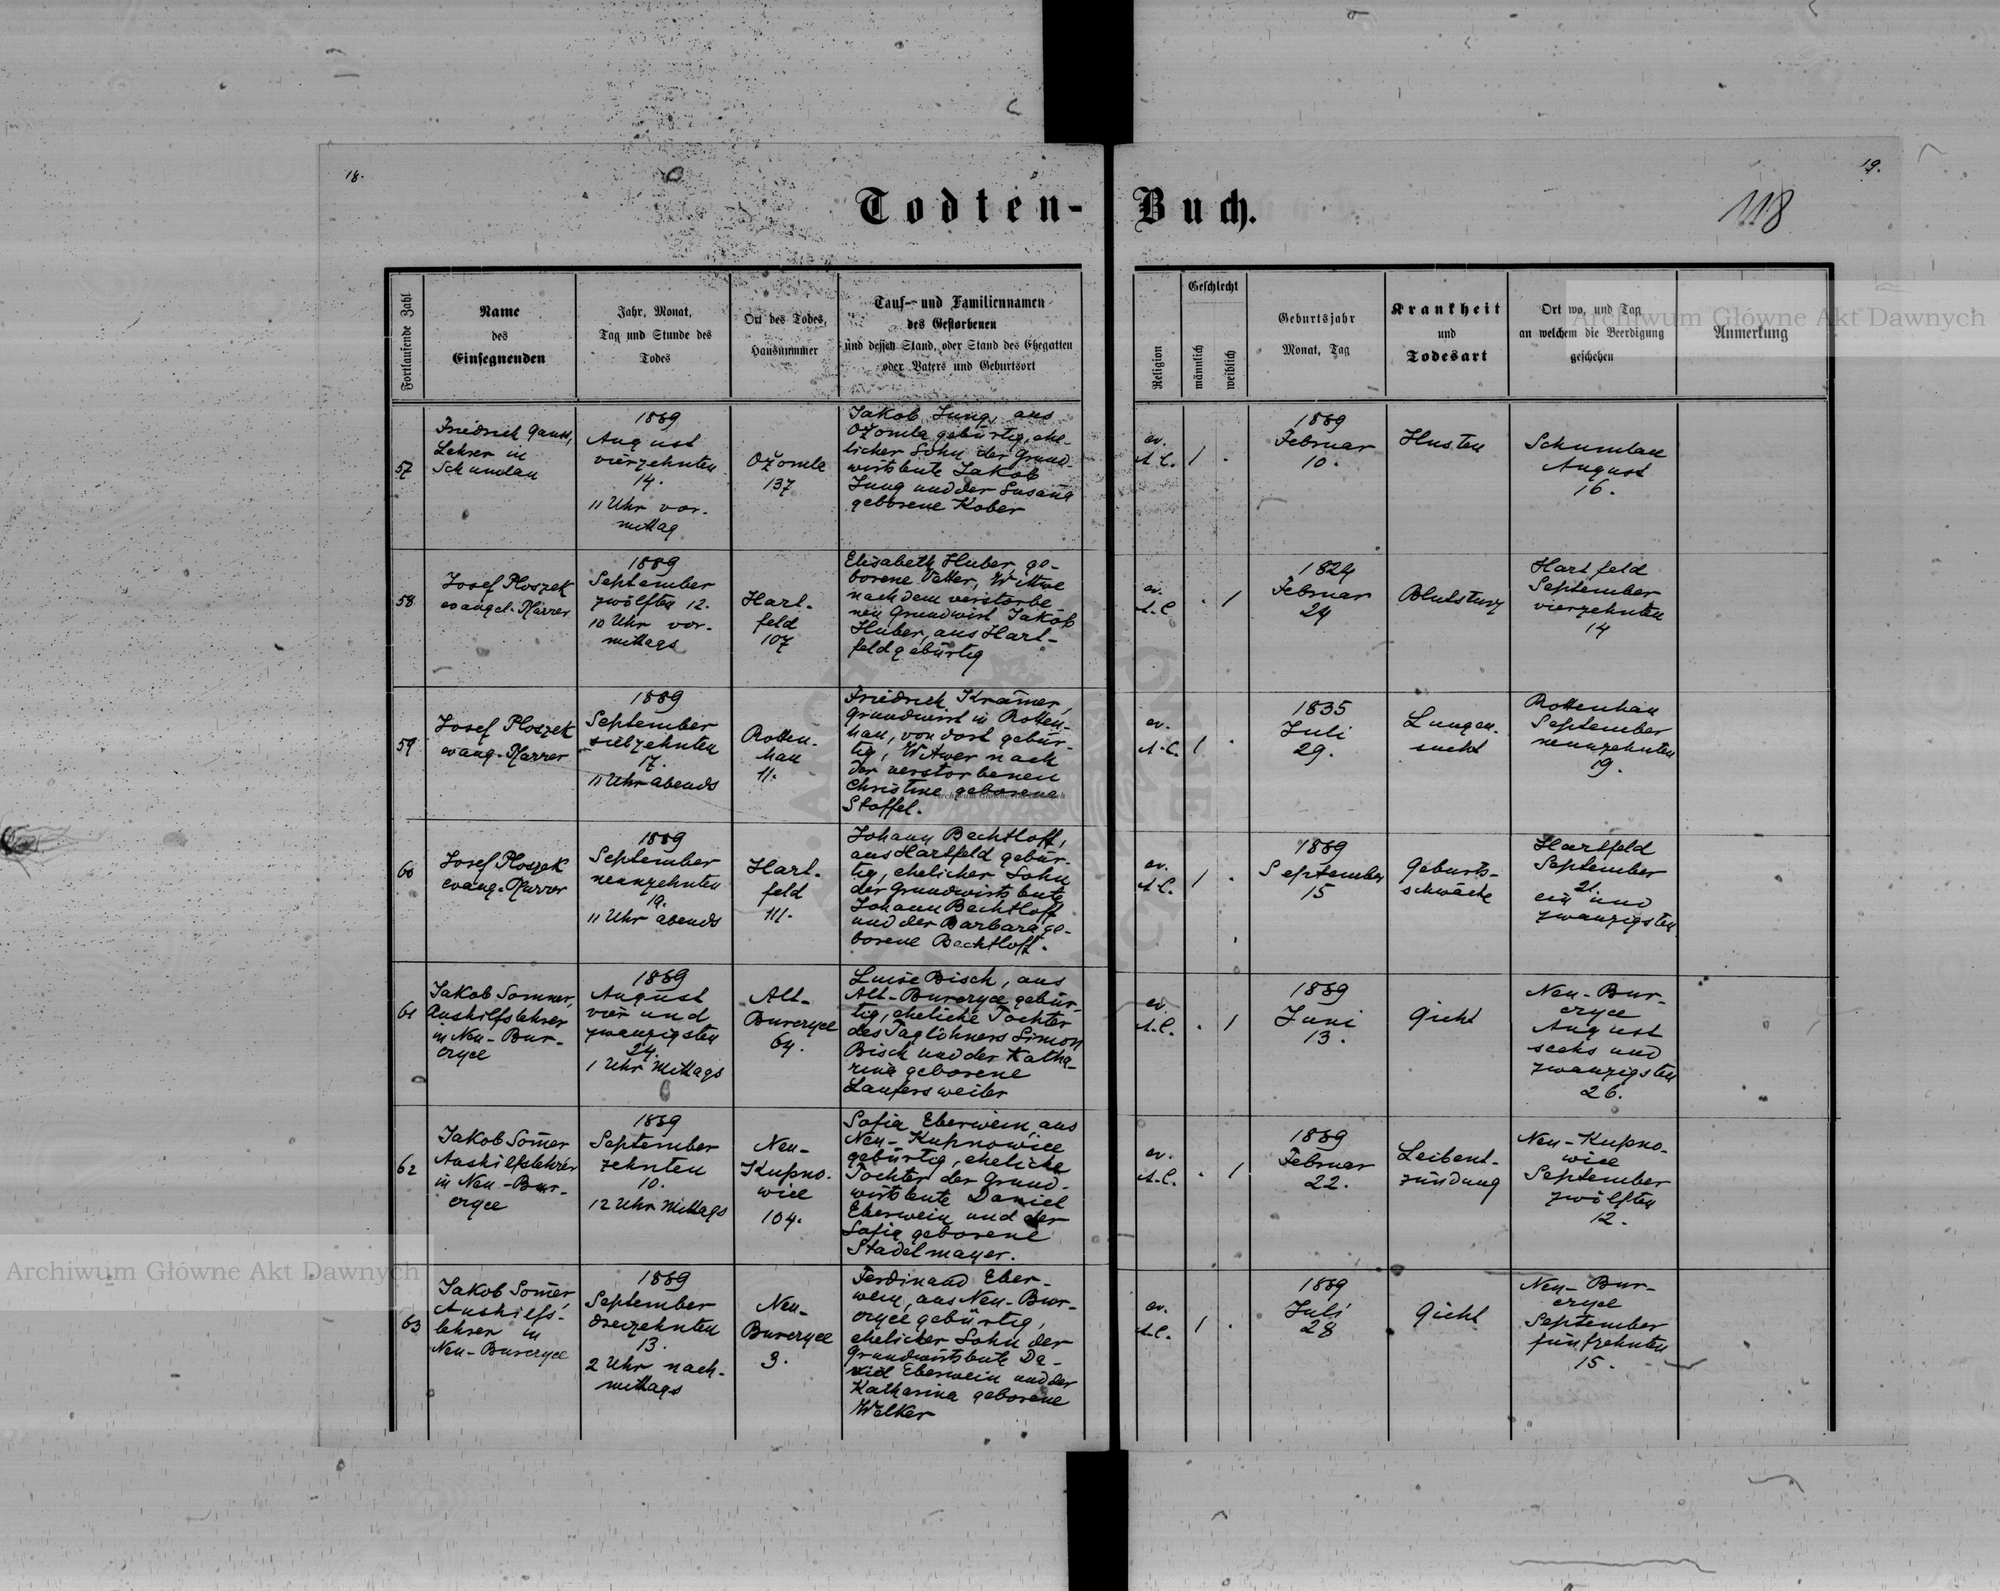 18.
19.
118
Todten-Buch.
Fortlaufende Zahl
Name
des
Einsegnenden
Jahr, Monat,
Tag und Stunde des
Todes
Ort des Todes,
Hausnummer
Tauf- und Familiennamen
des Gestorbenen
und dessen Stand, oder Stand des Ehegatten
oder Vaters und Geburtsort
Religion
Geschlecht
männlich
weiblich
Geburtsjahr
Monat, Tag
Krankheit
und
Todesart
Ort wo, und Tag
an welchem die Beerdigung
geschehen
Anmerkung
57
Friedrich Gauss,
Lehrer in
Schumlau
1889
August
vierzehnten
14.
11 Uhr vor-
mittag
Ożomla
137
Jakob Jung, aus
Ożomla gebürtig, ehe-
licher Sohn der Grund-
wirtsleute Jakob
Jung und der Susana
geborene Kober
ev.
A.C.
1
.
1889
Februar
10.
Husten
Schumlau
August
16.
58
Josef Ploszek
evangel. Pfarrer
1889
September
zwölften 12.
10 Uhr vor-
mittags
Hart-
feld
107
Elisabeth Huber, ge-
borene Vetter, Wittwe
nach dem verstorbe
nen Grundwirt Jakob
Huber, aus Hart-
feld gebürtig
ev.
A.C.
.
1
1824
Februar
24
Blutsturz
Hartfeld
September
vierzehnten
14
59
Josef Ploszek
evang. Pfarrer
1889
September
siebzehnten
17.
11 Uhr abends
Rotten-
han
11.
Friedrich Kramer,
Grundwirt in Rotten-
han, von dort gebür-
tig, Witwer nach
der verstorbenen
Christine geborene
Stoffel.
ev.
A.C.
1
.
1835
Juli
29.
Lungen-
sucht
Rottenhan
September
neunzehnten
19.
60
Josef Ploszek
evang. Pfarrer
1889
September
neunzehnten
19.
11 Uhr abends
Hart-
feld
111.
Johann Bechtloff,
aus Hartfeld gebür-
tig, ehelicher Sohn
der Grundwirtsleute
Johann Bechtloff
und der Barbara ge-
borene Bechtloff.
ev.
A.C.
1
.
1889
September
15
Geburts-
schwäche
Hartfeld
September
21.
ein und
zwanzigsten
61
Jakob Sommer,
Aushilfslehrer
in Neu-Bur-
czyce
1889
August
vier und
zwanzigsten
24.
1 Uhr Mittags
Alt-
Burczyce
64.
Luise Bisch, aus
Alt-Burczyce gebür-
tig, eheliche Tochter
des Taglöhners Simon
Bisch und der Katha-
rina geborene
Laufersweiler
ev.
A.C.
.
1
1889
Juni
13.
Gicht
Neu-Bur-
czyce
August
sechs und
zwanzigsten
26.
62
Jakob Som̄er
Aushilfslehrer
in Neu-Bur-
czyce
1889
September
zehnten
10.
12 Uhr Mittags
Neu-
Kupno-
wice
104.
Sofia Eberwein, aus
Neu-Kupnowice
gebürtig, eheliche
Tochter der Grund-
wirtsleute Daniel
Eberwein und der
Sofia geborene
Stadelmayer.
ev.
A.C.
.
1
1889
Februar
22.
Leibent-
zündung
Neu-Kupno-
wice
September
zwölften
12.
63
Jakob Som̄er,
Aushilfs-
lehrer in
Neu-Burczyce
1889
September
dreizehnten
13.
2 Uhr nach-
mittags
Neu-
Burczyce
3.
Ferdinand Eber-
wein, aus Neu-Bur-
czyce gebürtig,
ehelicher Sohn der
Grundwirtsleute Da-
niel Eberwein und der
Katharina geborene
Welker
ev.
A.C.
1
.
1889
Juli
28
Gicht
Neu-Bur-
czyce
September
fünfzehnten
15.
Archiwum Główne Akt Dawnych
Archiwum Główne Akt Dawnych